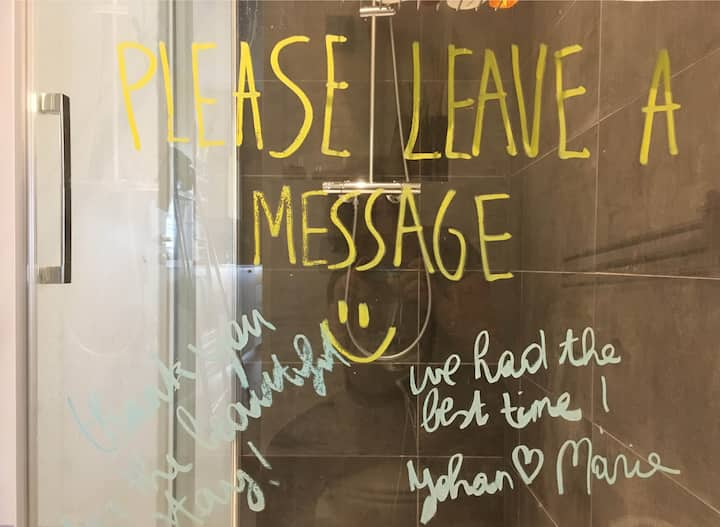 PLEASE LEAVE A
MESSAGE
thank you
for the beautiful
stay!
we had the
best time!
Yohan ♡ Marie